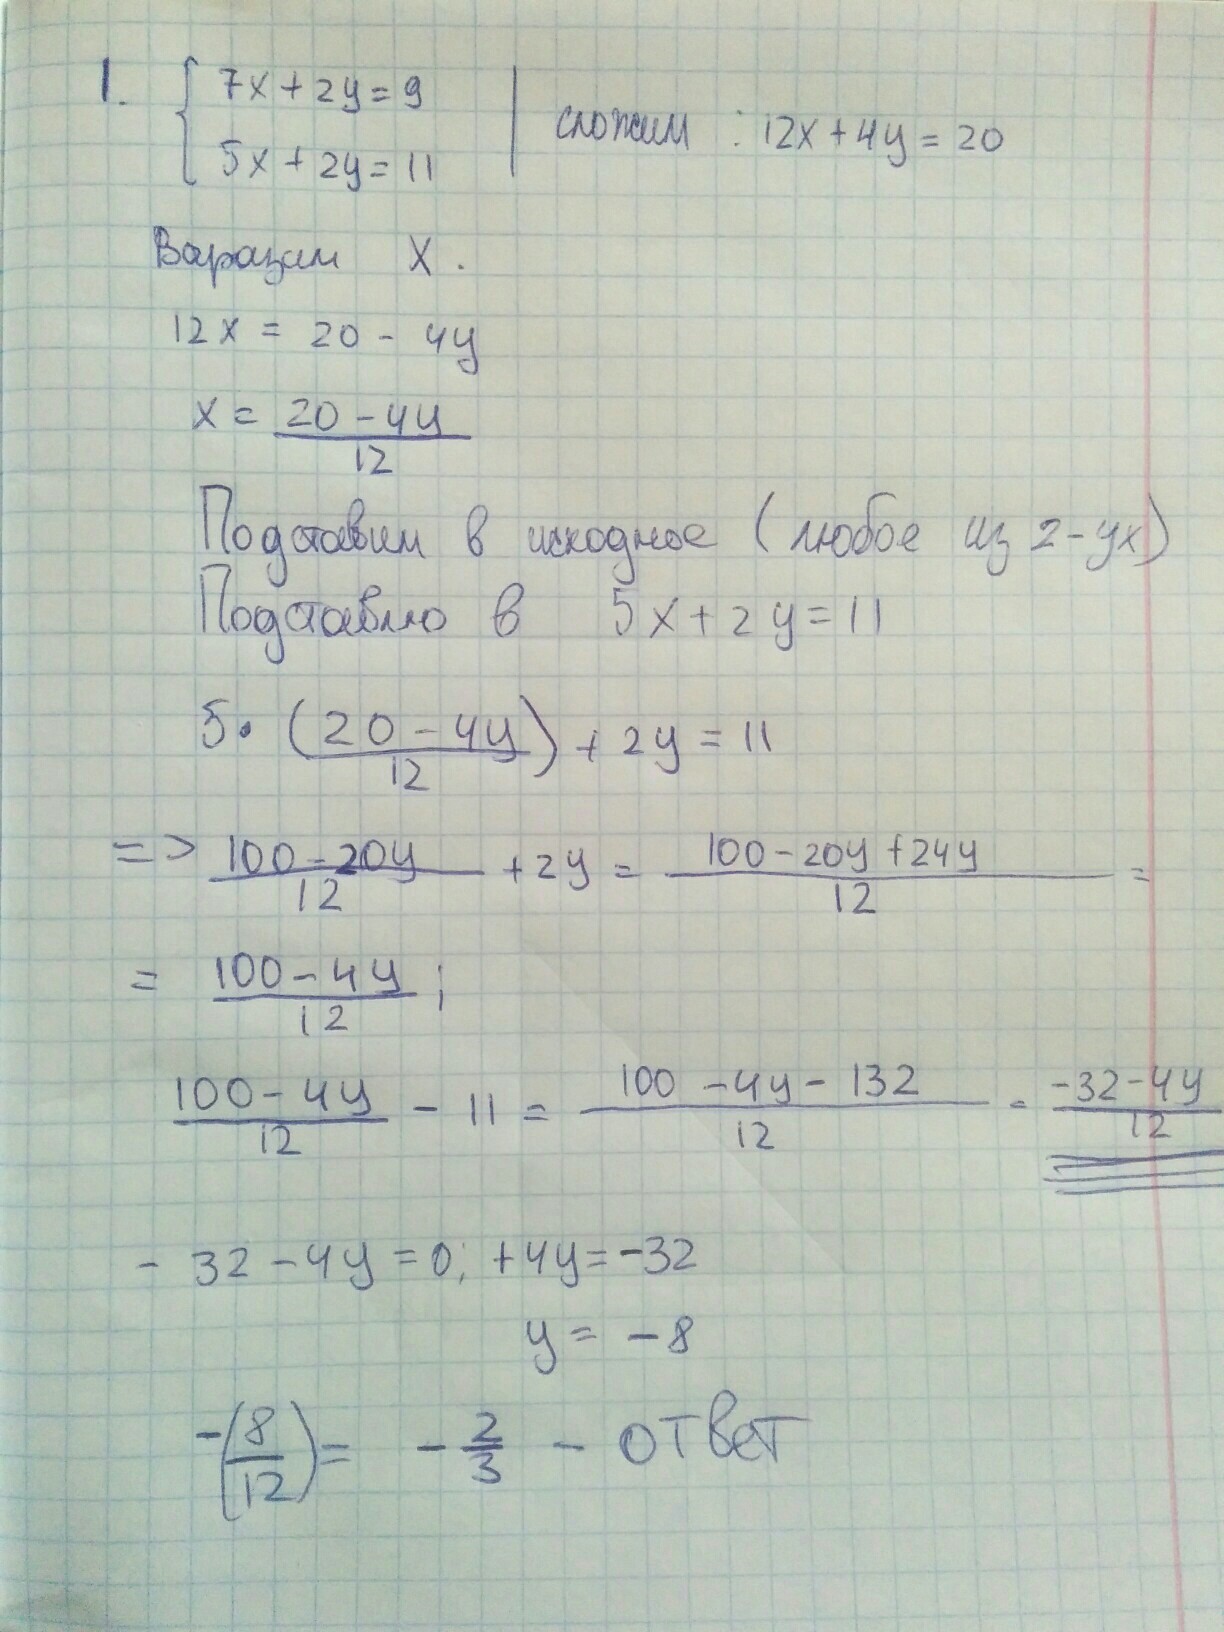 1. { 7x + 2y = 9
5x + 2y = 11 | сложим : 12x + 4y = 20
Варазим X.
12x = 20 - 4y
x = (20 - 4y)/12
Подставим в исходное (любое из 2-ух)
Подставлю в 5x + 2y = 11
5 · (20 - 4y)/12 + 2y = 11
=> (100 - 20y)/12 + 2y = (100 - 20y + 24y)/12 =
= (100 - 4y)/12 ;
(100 - 4y)/12 - 11 = (100 - 4y - 132)/12 = (-32 - 4y)/12
- 32 - 4y = 0; +4y = -32
y = -8
-(8/12) = - 2/3 - ответ